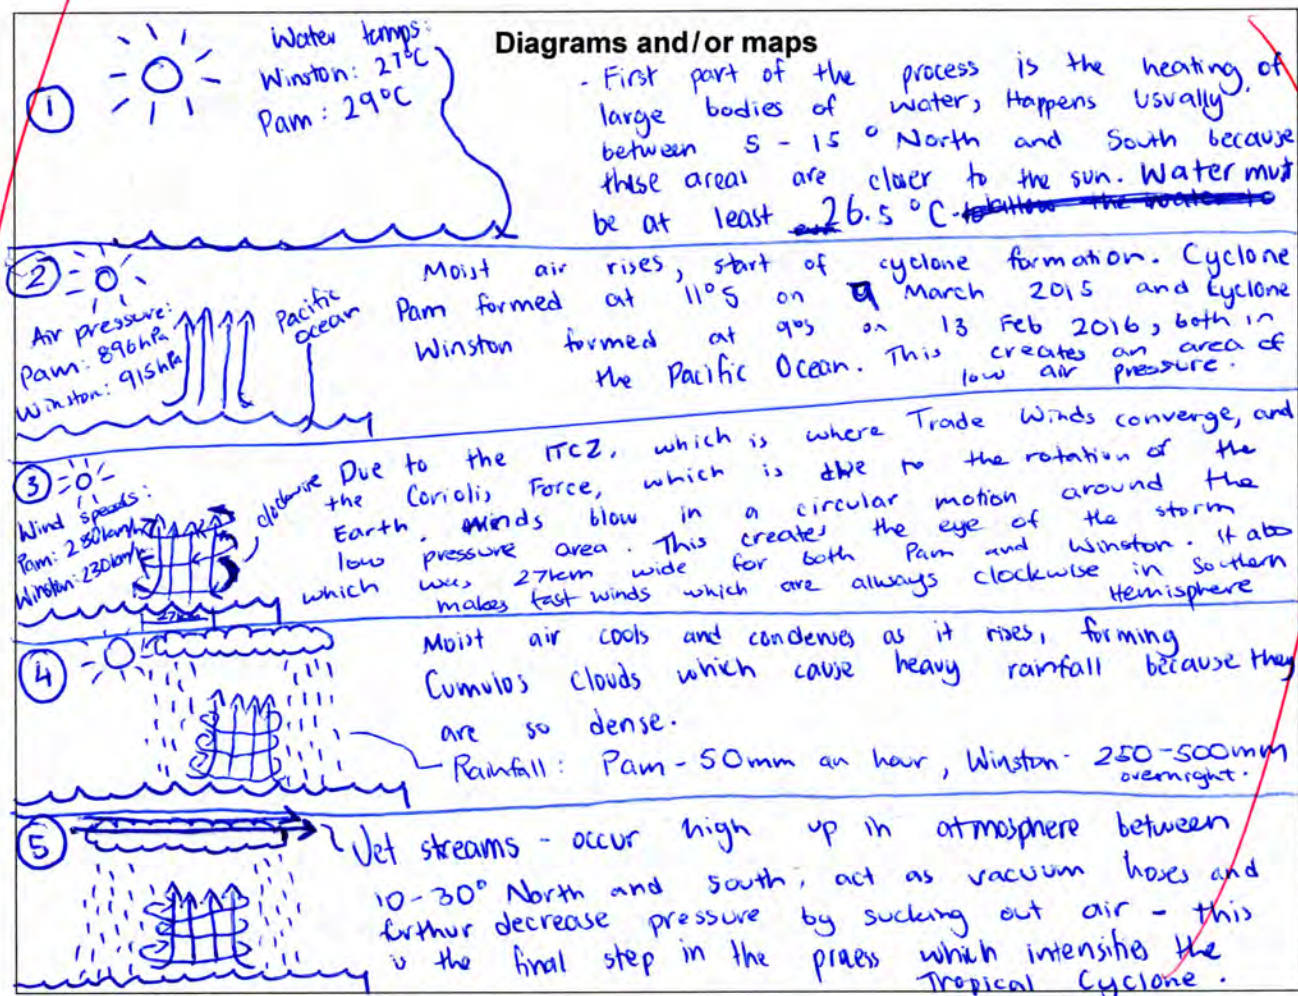 Diagrams and/or maps
1
Water temps:
Winston: 27°C
Pam: 29°C
- First part of the process is the heating of
large bodies of water, Happens usually
between 5 - 15° North and South because
these areas are closer to the sun. Water must
be at least 26.5°C
2
Air pressure:
Pam: 896hPa
Winston: 915hPa
Pacific
ocean
Moist air rises, start of cyclone formation. Cyclone
Pam formed at 11°S on 9 March 2015 and Cyclone
Winston formed at 9°S on 13 Feb 2016, both in
the Pacific Ocean. This creates an area of
low air pressure.
3
Wind speeds:
Pam: 250km/h
Winston: 230km/h
clockwise
27km
Due to the ITCZ, which is where Trade Winds converge, and
the Coriolis Force, which is due to the rotation of the
Earth, winds blow in a circular motion around the
low pressure area. This creates the eye of the storm
which was 27km wide for both Pam and Winston. It also
makes fast winds which are always clockwise in Southern
Hemisphere
4
Moist air cools and condenses as it rises, forming
Cumulos clouds which cause heavy rainfall because they
are so dense.
Rainfall: Pam - 50mm an hour, Winston - 250-500mm
overnight.
5
Jet streams - occur high up in atmosphere between
10-30° North and South, act as vacuum hoses and
furthur decrease pressure by sucking out air - this
is the final step in the process which intensifies the
Tropical Cyclone.